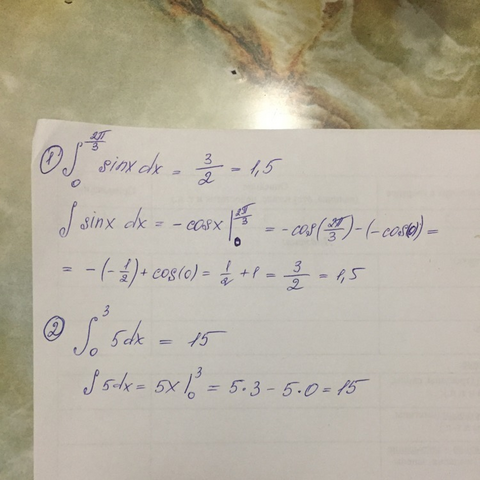 1) ∫₀^(2π/3) sinx dx = 3/2 = 1,5
∫ sinx dx = -cosx |₀^(2π/3) = -cos(2π/3) - (-cos0) =
= -(-1/2) + cos(0) = 1/2 + 1 = 3/2 = 1,5
2 ∫₀³ 5dx = 15
∫ 5dx = 5x |₀³ = 5·3 - 5·0 = 15